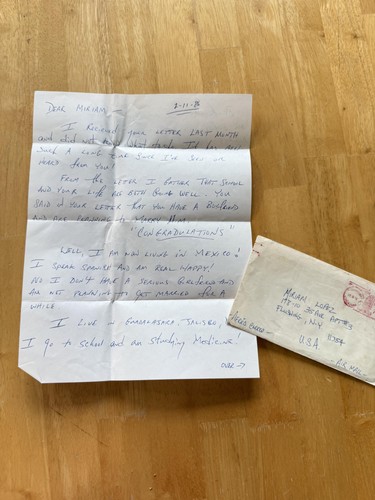 Dear Miriam -
I received your letter last month
and did not know what to
such a long time since I've
heard from you
From the letter I gather that school
and your life are both going well. You
said in your letter that you have a boyfriend
and are planning to marry him.
"CONGRADULATIONS"
Well, I am now living in Mexico!
I speak Spanish and am real happy!
I don't have a serious girlfriend and
am not planning to get married for a
while
I live in Guadalajara, Jalisco,
I go to school and am studying medicine!
over →
Miriam Lopez
Flushing, N.Y.
USA
Air Mail